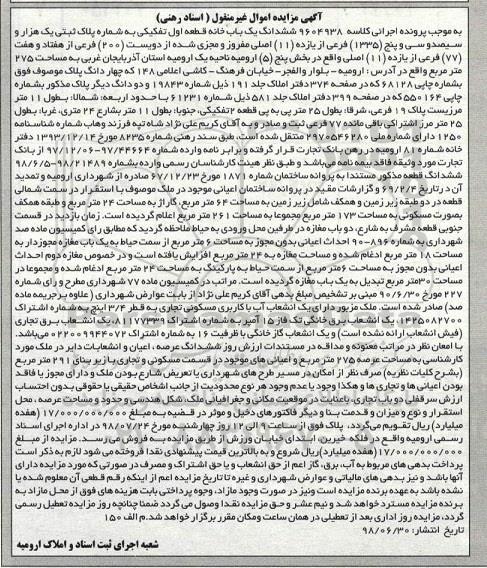 آگهی مزایده اموال غیر منقول ( اسناد رهنی)
به موجب پرونده اجرائی کلاسه ۹۶۰۴۹۳۸ ششدانگ یک باب خانه قطعه اول تفکیکی به شماره پلاک ثبتی یک هزار و
سیصد و سی و پنج (۱۳۳۵) فرعی از یازده (۱۱) اصلی مفروز و مجزی شده از دویست (۲۰۰) فرعی از هفتاد و هفت
(۷۷) فرعی از یازده (۱۱) اصلی واقع در بخش پنج (۵) ارومیه ناحیه یک ارومیه استان آذربایجان غربی به مساحت ۲۷۵
متر مربع واقع در آدرس : ارومیه - بلوار والفجر- خیابان فرهنگ - کاشی اعلامی ۱۴۸ که چهار دانگ پلاک موصوف فوق
چاپی ۶۸۱۲۸ که در صفحه ۳۷۴ دفتر املاک جلد ۱۹۱ ذیل شماره ۱۹۸۴۳ و دو دانگ دیگر پلاک مذکور بشماره
چاپی ۵۵۰۱۶۴ که در صفحه ۳۹۹ دفتر املاک جلد ۵۸۱ ذیل شماره ۶۱۲۳۱ با حدود اربعه: شمالا: بطول ۱۱ متر
مرزیست بلاک ۱۹ فرعی، شرقا: بطول ۲۵ متر پی به پی قطعه ۲ تفکیکی، جنوبا: بطول ۱۱ متر بشارع ۲۴ متری، غربا: بطول
۲۵ متر مرز اشتراکی باقی مانده ۷۷ فرعی ثبت و صادر و به آقای کریم علی نژاد شاه تپه فرزند وهاب شماره شناسنامه
۱۲۵۰ دارای شماره ملی ۲۹۷۰۵۴۶۲۸۰ منتقل شده است، طبق سند رهنی شماره ۸۲۰۵ مورخ ۱۳۹۳/۱۲/۱۴ دفتر
خانه شماره ۸۱ ارومیه در رهن بانک تجارت قرار گرفته و برابر نامه وارده شماره ۹۷/۴۴۶۶۴-۹۷/۱۲/۰۶ از بانک
تجارت مورد وثیقه فاقد بیمه نامه می باشد و طبق نظر هیئت کارشناسان رسمی وارده بشماره ۹۸/۲۱۴۸۹-۹۸/۶/۵
ششدانگ قطعه مذکور مستندا به پروانه ساختمان شماره ۱۸۷۱ مورخ ۶۷/۱۲/۲۳ صادره از شهرداری ارومیه و تمدید
آن در تاریخ ۶۹/۲/۴ و گزارشات مقید در پروانه ساختمان اعیانی موجود در ملک موصوف با استقرار در سمت شمالی
قطعه در دو طبقه زیر زمین و همکف شامل زیر زمین به مساحت ۶۴ متر مربع، گاراژ به مساحت ۲۴ متر مربع و طبقه همکف
بصورت مسکونی به مساحت ۱۷۳ متر مربع مجموعا به مساحت ۲۶۱ متر مربع اعلام گردیده است. زمان بازدید در قسمت
جنوبی قطعه مشرف به شارع، دو باب مغازه در طرفین محل ورودی به حیاط ملاحظه گردید که مطابق رای کمیسیون ماده صد
شهرداری به شماره ۸۹۶-۹۰ احداث اعیانی بدون مجوز به مساحت ۶ متر مربع از سمت حیاط به یک باب مغازه مجوزدار به
مساحت ۱۸ متر مربع ادغام شده و مساحت مغازه به ۲۴ متر مربع افزایش یافته است و در خصوص مغازه دوم احداث
اعیانی بدون مجوز به مساحت ۶ متر مربع از سمت حیاط به پارکینگ به مساحت ۲۴ متر مربع ادغام شده و مجموعا در
مساحت ۳۰ متر مربع تبدیل به یک باب مغازه گردیده است. مراتب در کمیسیون ماده ۷۷ شهرداری مطرح و رای شماره
۲۲۷ مورخ ۹۰/۶/۳۰ مبنی بر تشخیص مبلغ بدهی آقای کریم علی نژاد از بابت عوارض شهرداری (علاوه بر جریمه ماده
صد) صادر شده است. ملک مزبور دارای یک انشعاب آب با کاربری مسکونی تجاری به قطر ۳/۴ اینچ به شماره اشتراک
۱۴۲۵۰۸۲۷۰۵، یک انشعاب برق خانگی تک فاز ۱۵ آمپر به شماره اشتراک ۸۱۱۷۷۳۹، یک انشعاب برق تجاری
(فیش انشعاب ارائه نشده است) و یک انشعاب گاز خانگی با ظرفیت ۱۶ به شماره اشتراک ۰۲۲۰۰۹۹۴۴۰۷ می‌باشد.
با امعان نظر در مراتب معنونه و مداقه در مستندات ارزش روز ششدانگ عرصه، اعیان و انشعابات دایر در ملک مورد
کارشناسی به مساحت عرصه ۲۷۵ متر مربع و اعیانی های موجود در قسمت مسکونی و تجاری با زیر بنای ۲۹۱ متر مربع
(بشرح کلیات نظریه) صرف نظر از امکان در مسیر طرح های شهرداری یا تعریض شارع بودن ملک و دارای مجوز یا فاقد
بودن اعیانی ها و تجاری ها و هکذا وجود یا عدم وجود هر نوع محدودیت از جانب اشخاص حقیقی یا حقوقی بدون احتساب
ارزش سرقفلی دو باب تجاری، با عنایت در موقعیت مکانی و جغرافیائی ملک، شکل هندسی و حدود و مساحت عرصه ، محل
استقرار و نوع و میزان و قدمت بنا و دیگر فاکتورهای دخیل و موثر در قضیه به مبلغ ۱۷/۰۰۰/۰۰۰/۰۰۰ (هفده
میلیارد) ریال تقویم می گردد. پلاک فوق از ساعت ۹ الی ۱۲ روز چهارشنبه مورخ ۹۸/۰۷/۲۴ در اداره اجرای اسناد
رسمی ارومیه واقع در خیرین، ابتدای خیابان ورزش از طریق مزایده به فروش می رسد. مزایده از مبلغ
۱۷/۰۰۰/۰۰۰/۰۰۰ (هفده میلیارد)ریال شروع و به بالاترین قیمت پیشنهادی نقدا فروخته می شود لازم به ذکر است
پرداخت بدهی های مربوط به آب، برق، گاز اعم از حق انشعاب و یا حق اشتراک و مصرف در صورتی که مورد مزایده دارای
آنها باشد و نیز بدهی های مالیاتی و عوارض شهرداری و غیره تا تاریخ مزایده اعم از اینکه رقم قطعی آن معلوم شده یا
نشده باشد به عهده برنده مزایده است ونیز در صورت وجود مازاد، وجوه پرداختی بابت هزینه های فوق از محل مازاد به
برنده مزایده مسترد خواهد شد و نیم عشر و حق مزایده نقدا وصول می گردد ضمنا چنانچه روز مزایده تعطیل رسمی
گردد، مزایده روز اداری بعد از تعطیلی در همان ساعت ومکان مقرر برگزار خواهد شد.م الف ۱۵۰
تاریخ انتشار: ۹۸/۰۶/۳۰
شعبه اجرای ثبت اسناد و املاک ارومیه